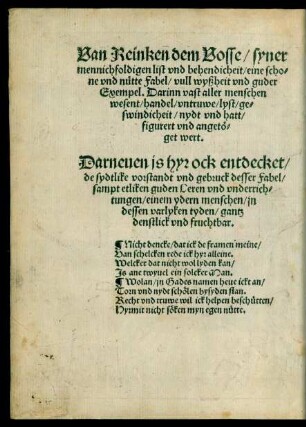 Van Reinken dem Vosse / syner
mennichfoldigen list vnd behendicheit / eine scho-
ne vnd nütte Fabel / vull wyßheit vnd guder
Exempel. Darinn vast aller menschen
wesent / handel / vntruwe / lyst / ge-
swindicheit / nydt vnd hatt /
figurert vnd angetö-
get wert.
Darneuen is hyr ock entdecket /
de sydtlike vorstandt vnd gebruck desser Fabel /
sampt etliken guden Leren vnd vnderrich-
tungen / einem ydern menschen / jn
dessen varlyken tyden / gantz
denstlick vnd fruchtbar.
¶ Nicht dencke / dat ick de framen meine /
Van schelcken rede ick hyr alleine.
Welcker dat nicht wol lyden kan /
Is ane twyuel ein solcker Man.
¶ Wolan / jn Gades namen heue ickt an /
Torn vnd nydt schölen bysyden stan.
Recht vnd truwe wil ick helpen beschütten /
Hyrmit nicht söken myn egen nütte.